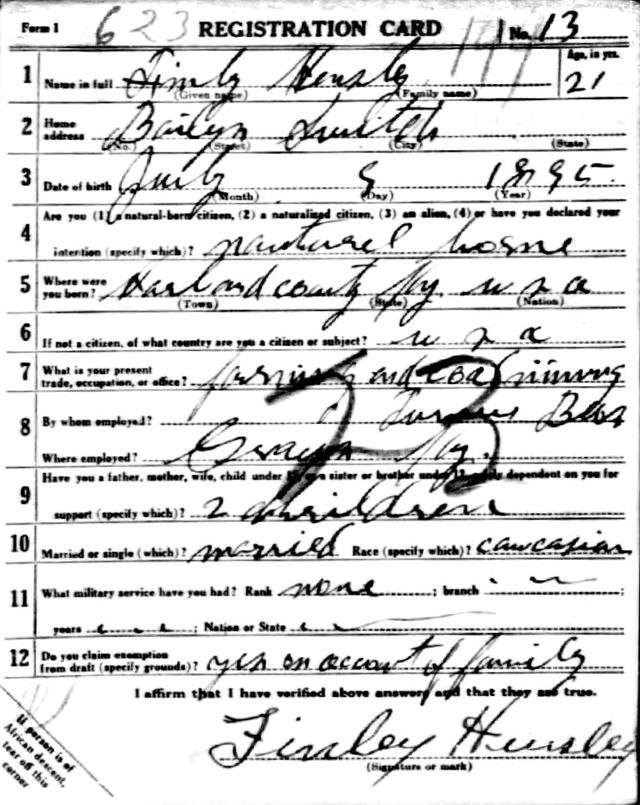 Form 1 623 REGISTRATION CARD No. 13
1 Name in full Finly Hensly Age, in yrs. 21
(Given name) (Family name)
2 Home address
(No.) (Street) (City) (State)
3 Date of birth July 9 1895.
(Month) (Day) (Year)
4 Are you (1) a natural-born citizen, (2) a naturalized citizen, (3) an alien, (4) or have you declared your
intention (specify which)? nautural borne
5 Where were you born? Harland county Ky. u s a
(Town) (State) (Nation)
6 If not a citizen, of what country are you a citizen or subject? u s a
7 What is your present trade, occupation, or office? farming and coal mining
8 By whom employed? Bros
Where employed? Ky.
9 Have you a father, mother, wife, child under 12, or a sister or brother under 12, solely dependent on you for
support (specify which)? 2 children
10 Married or single (which)? married Race (specify which)? caucasian
11 What military service have you had? Rank none ; branch ;
years ; Nation or State
12 Do you claim exemption from draft (specify grounds)? yes on account of family
I affirm that I have verified above answers and that they are true.
Finsley Hensley
(Signature or mark)
If person is of
African descent,
tear off this
corner